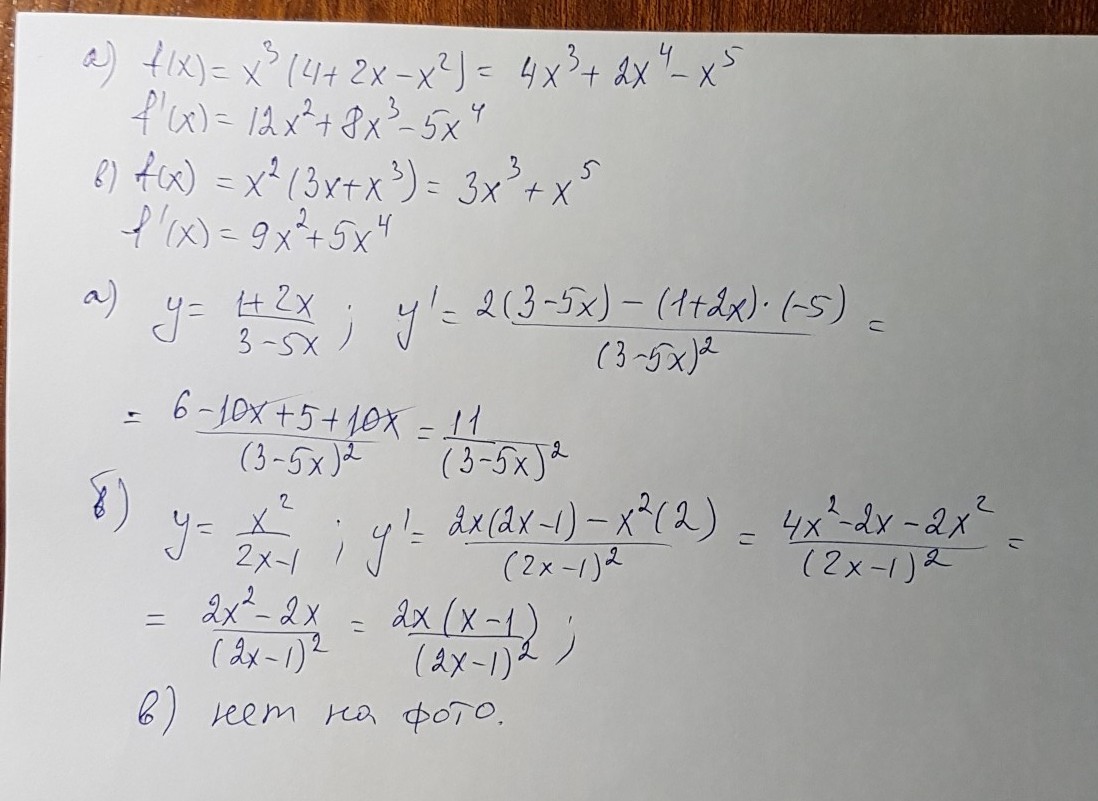 а) f(x) = x³(4 + 2x - x²) = 4x³ + 2x⁴ - x⁵
f'(x) = 12x² + 8x³ - 5x⁴
в) f(x) = x²(3x + x³) = 3x³ + x⁵
f'(x) = 9x² + 5x⁴
а) y = (1+2x)/(3-5x) ; y' = (2(3-5x) - (1+2x)·(-5))/(3-5x)² =
= (6 - 10x + 5 + 10x)/(3-5x)² = 11/(3-5x)²
б) y = x²/(2x-1) ; y' = (2x(2x-1) - x²(2))/(2x-1)² = (4x² - 2x - 2x²)/(2x-1)² =
= (2x² - 2x)/(2x-1)² = (2x(x-1))/(2x-1)² ;
в) нет на фото.